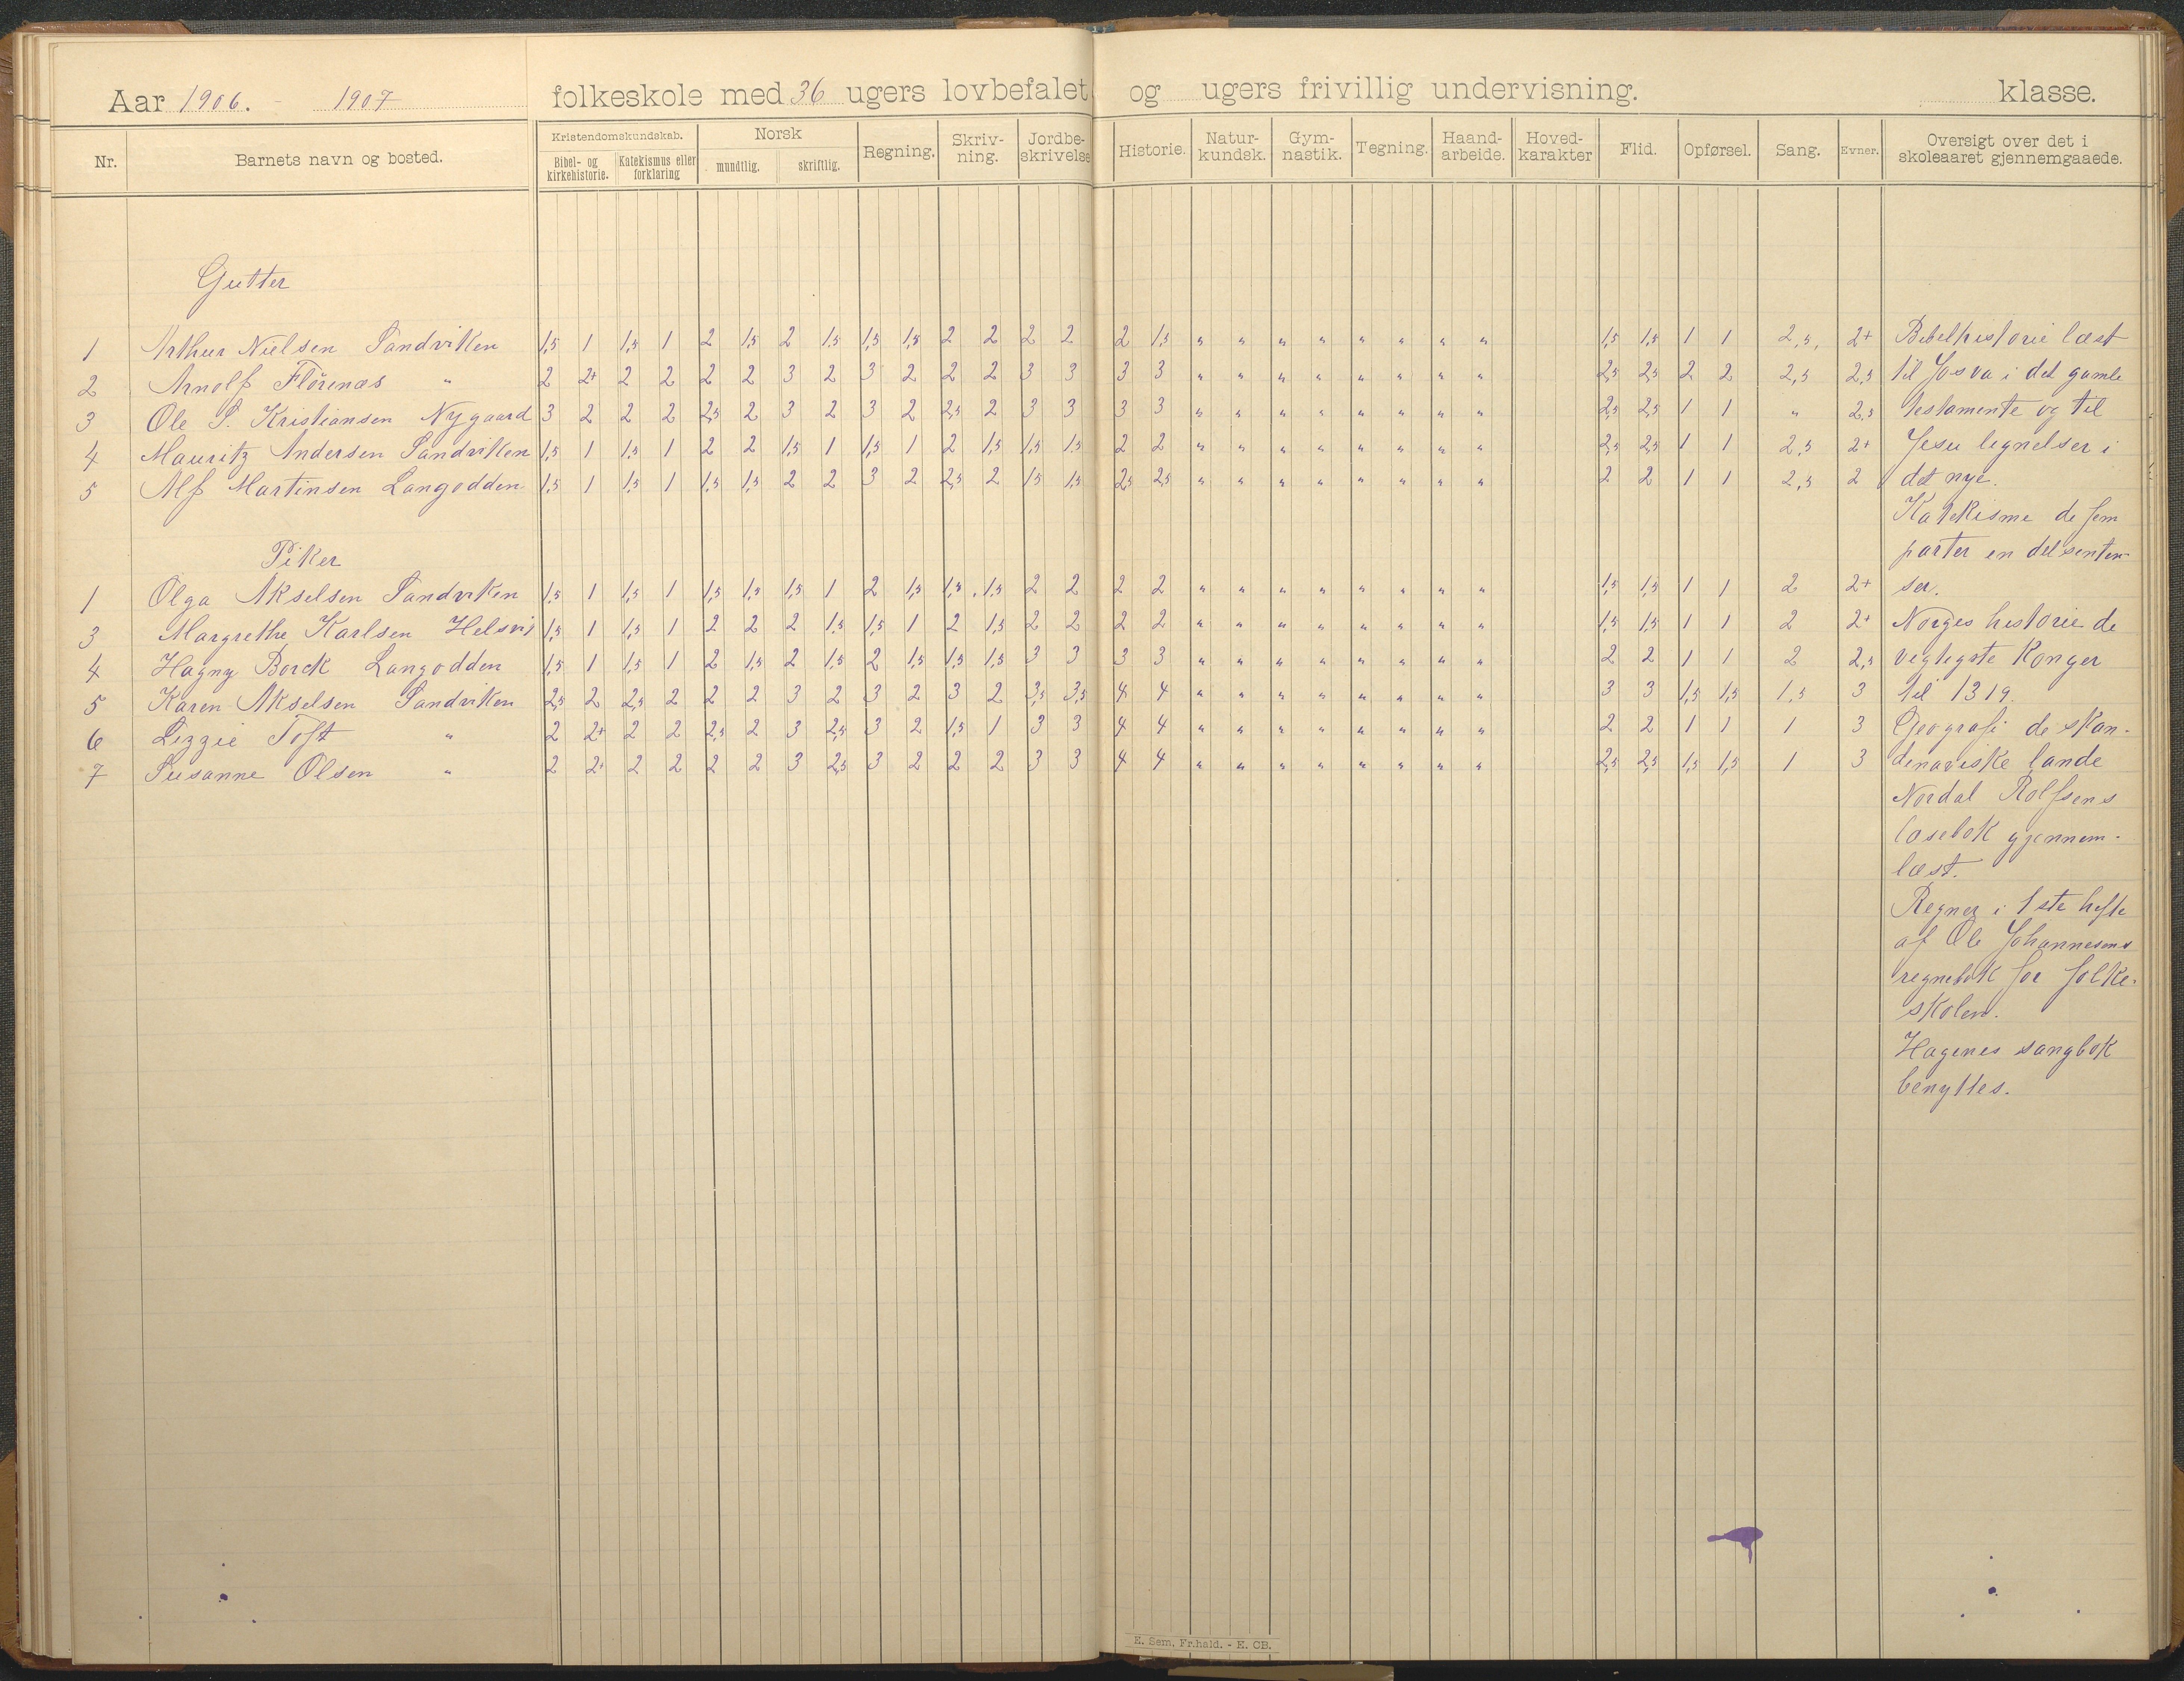 Aar 1906. - 1907 folkeskole med 36 ugers lovbefalet og ugers frivillig undervisning. klasse.
Nr. Barnets navn og bosted. Kristendomskundskab. Norsk Regning. Skriv-ning. Jordbe-skrivelse Historie. Natur-kundsk. Gym-nastik. Tegning. Haand-arbeide. Hoved-karakter Flid. Opførsel. Sang. Evner. Oversigt over det i skoleaaret gjennemgaaede.
Bibel- og kirkehistorie. Katekismus eller forklaring mundtlig. skriftlig.
Gutter
1 Arthur Nielsen Sandviken 1,5 1 1,5 1 2 1,5 2 1,5 1,5 1,5 2 2 2 2 2 1,5 " " " " " " " " 1,5 1,5 1 1 2,5, 2+ Bibelhistorie læst
2 Arnolf Flörenæs " 2 2+ 2 2 2 2 3 2 3 2 2 2 3 3 3 3 " " " " " " " " 2,5 2,5 2 2 2,5 2,5 til Josva i det gamle
3 Ole S. Kristiansen Nygaard 3 2 2 2 2,5 2 3 2 3 2 2,5 2 3 3 3 3 " " " " " " " " 2,5 2,5 1 1 " 2,5 testamente og til
4 Mauritz Andersen Sandviken 1,5 1 1,5 1 2 2 1,5 1 1,5 1 2 1,5 1,5 1,5 2 2 " " " " " " " " 2,5 2,5 1 1 2,5 2+ Jesu lignelser i
5 Alf Martinsen Langodden 1,5 1 1,5 1 1,5 1,5 2 2 3 2 2,5 2 1,5 1,5 2,5 2,5 " " " " " " " " 2 2 1 1 2,5 2 det nye.
Katekisme de fem
Piker parter en del senten-
1 Olga Akselsen Sandviken 1,5 1 1,5 1 1,5 1,5 1,5 1 2 1,5 1,5 1,5 2 2 2 2 " " " " " " " " 1,5 1,5 1 1 2 2+ ser.
3 Margrethe Karlsen Helsvig 1,5 1 1,5 1 2 2 2 1,5 1,5 1 2 1,5 2 2 2 2 " " " " " " " " 1,5 1,5 1 1 2 2+ Norges historie de
4 Hagny Borck Langodden 1,5 1 1,5 1 2 1,5 2 1,5 2 1,5 1,5 1,5 3 3 3 3 " " " " " " " " 2 2 1 1 2 2,5 vegtigste Konger
5 Karen Akselsen Sandviken 2,5 2 2,5 2 2 2 3 2 3 2 3 2 3,5 3,5 4 4 " " " " " " " " 3 3 1,5 1,5 1,5 3 til 1319.
6 Lizzie Toft " 2 2+ 2 2 2,5 2 3 2,5 3 2 1,5 1 3 3 4 4 " " " " " " " " 2 2 1 1 1 3 Geografi de skan-
7 Susanne Olsen " 2 2+ 2 2 2 2 3 2,5 3 2 2 2 3 3 4 4 " " " " " " " " 2,5 2,5 1,5 1,5 1 3 denaviske lande
Nordal Rolfsens
læsebok gjennem-
læst.
Regner i 1ste hefte
af Ole Johannesens
regnebok for folke-
skolen.
Hagenes sangbok
benyttes.
E. Sem, Fr.hald. - E. CB.